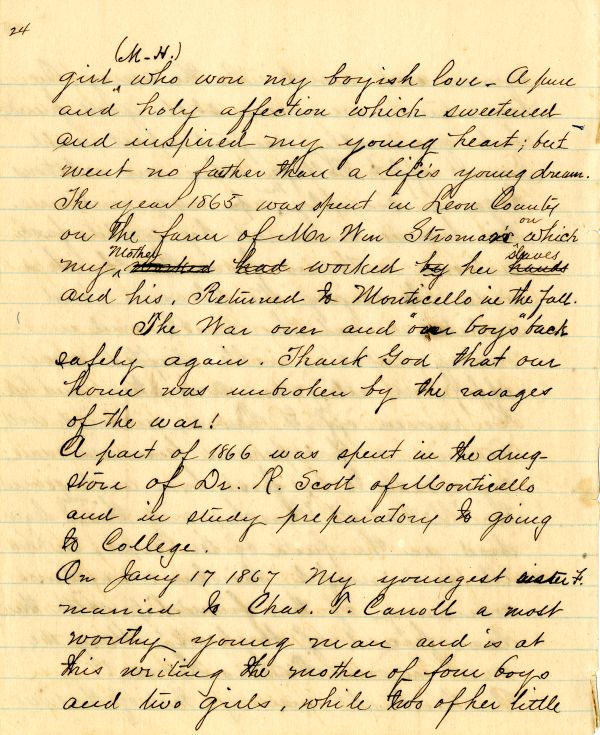 24
(M-H.)
girl, who won my boyish love - A pure
and holy affection which sweetened
and inspired my young heart; but
went no father than a life's young dream.
The year 1865 was spent in Leon County
on the farm of Mr Wm Stroman on which
my Mother worked had worked by her slaves hands
and his. Returned to Monticello in the Fall.
The War over and "our boys" back
safely again. Thank God that our
home was unbroken by the ravages
of the war!
A part of 1866 was spent in the drug-
store of Dr. R. Scott of Monticello
and in study preparatory to going
to College.
On Jany 17 1867 My youngest sister F.
married to Chas. T. Carroll a most
worthy young man and is at
this writing the mother of four boys
and two girls, while two of her little